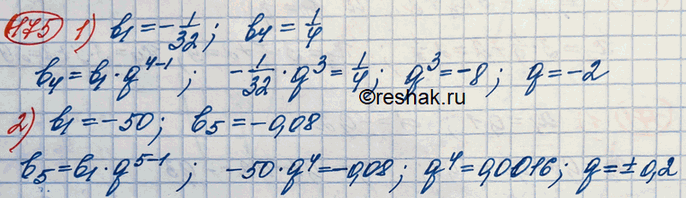 475 1) b₁ = -1/32; b₄ = 1/4
b₄ = b₁ · q⁴⁻¹; -1/32 · q³ = 1/4; q³ = -8; q = -2
©reshak.ru
2) b₁ = -50; b₅ = -0,08
b₅ = b₁ · q⁵⁻¹; -50 · q⁴ = -0,08; q⁴ = 0,0016; q = ± 0,2